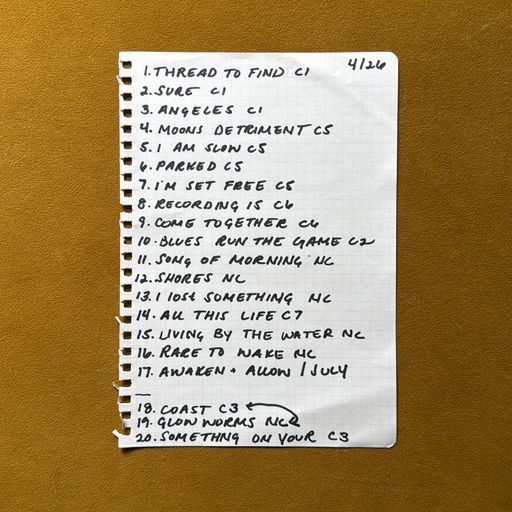 4/26
1. THREAD TO FIND C1
2. SURE C1
3. ANGELES C1
4. MOONS DETRIMENT C5
5. I AM SLOW C5
6. PARKED C5
7. I'M SET FREE C5
8. RECORDING 15 C6
9. COME TOGETHER C6
10. BLUES RUN THE GAME C2
11. SONG OF MORNING NC
12. SHORES NC
13. I LOST SOMETHING NC
14. ALL THIS LIFE C7
15. LIVING BY THE WATER NC
16. RARE TO WAKE NC
17. AWAKEN + ALLOW / JULY
18. COAST C3
19. GLOW WORMS NC
20. SOMETHNG ON YOUR C3